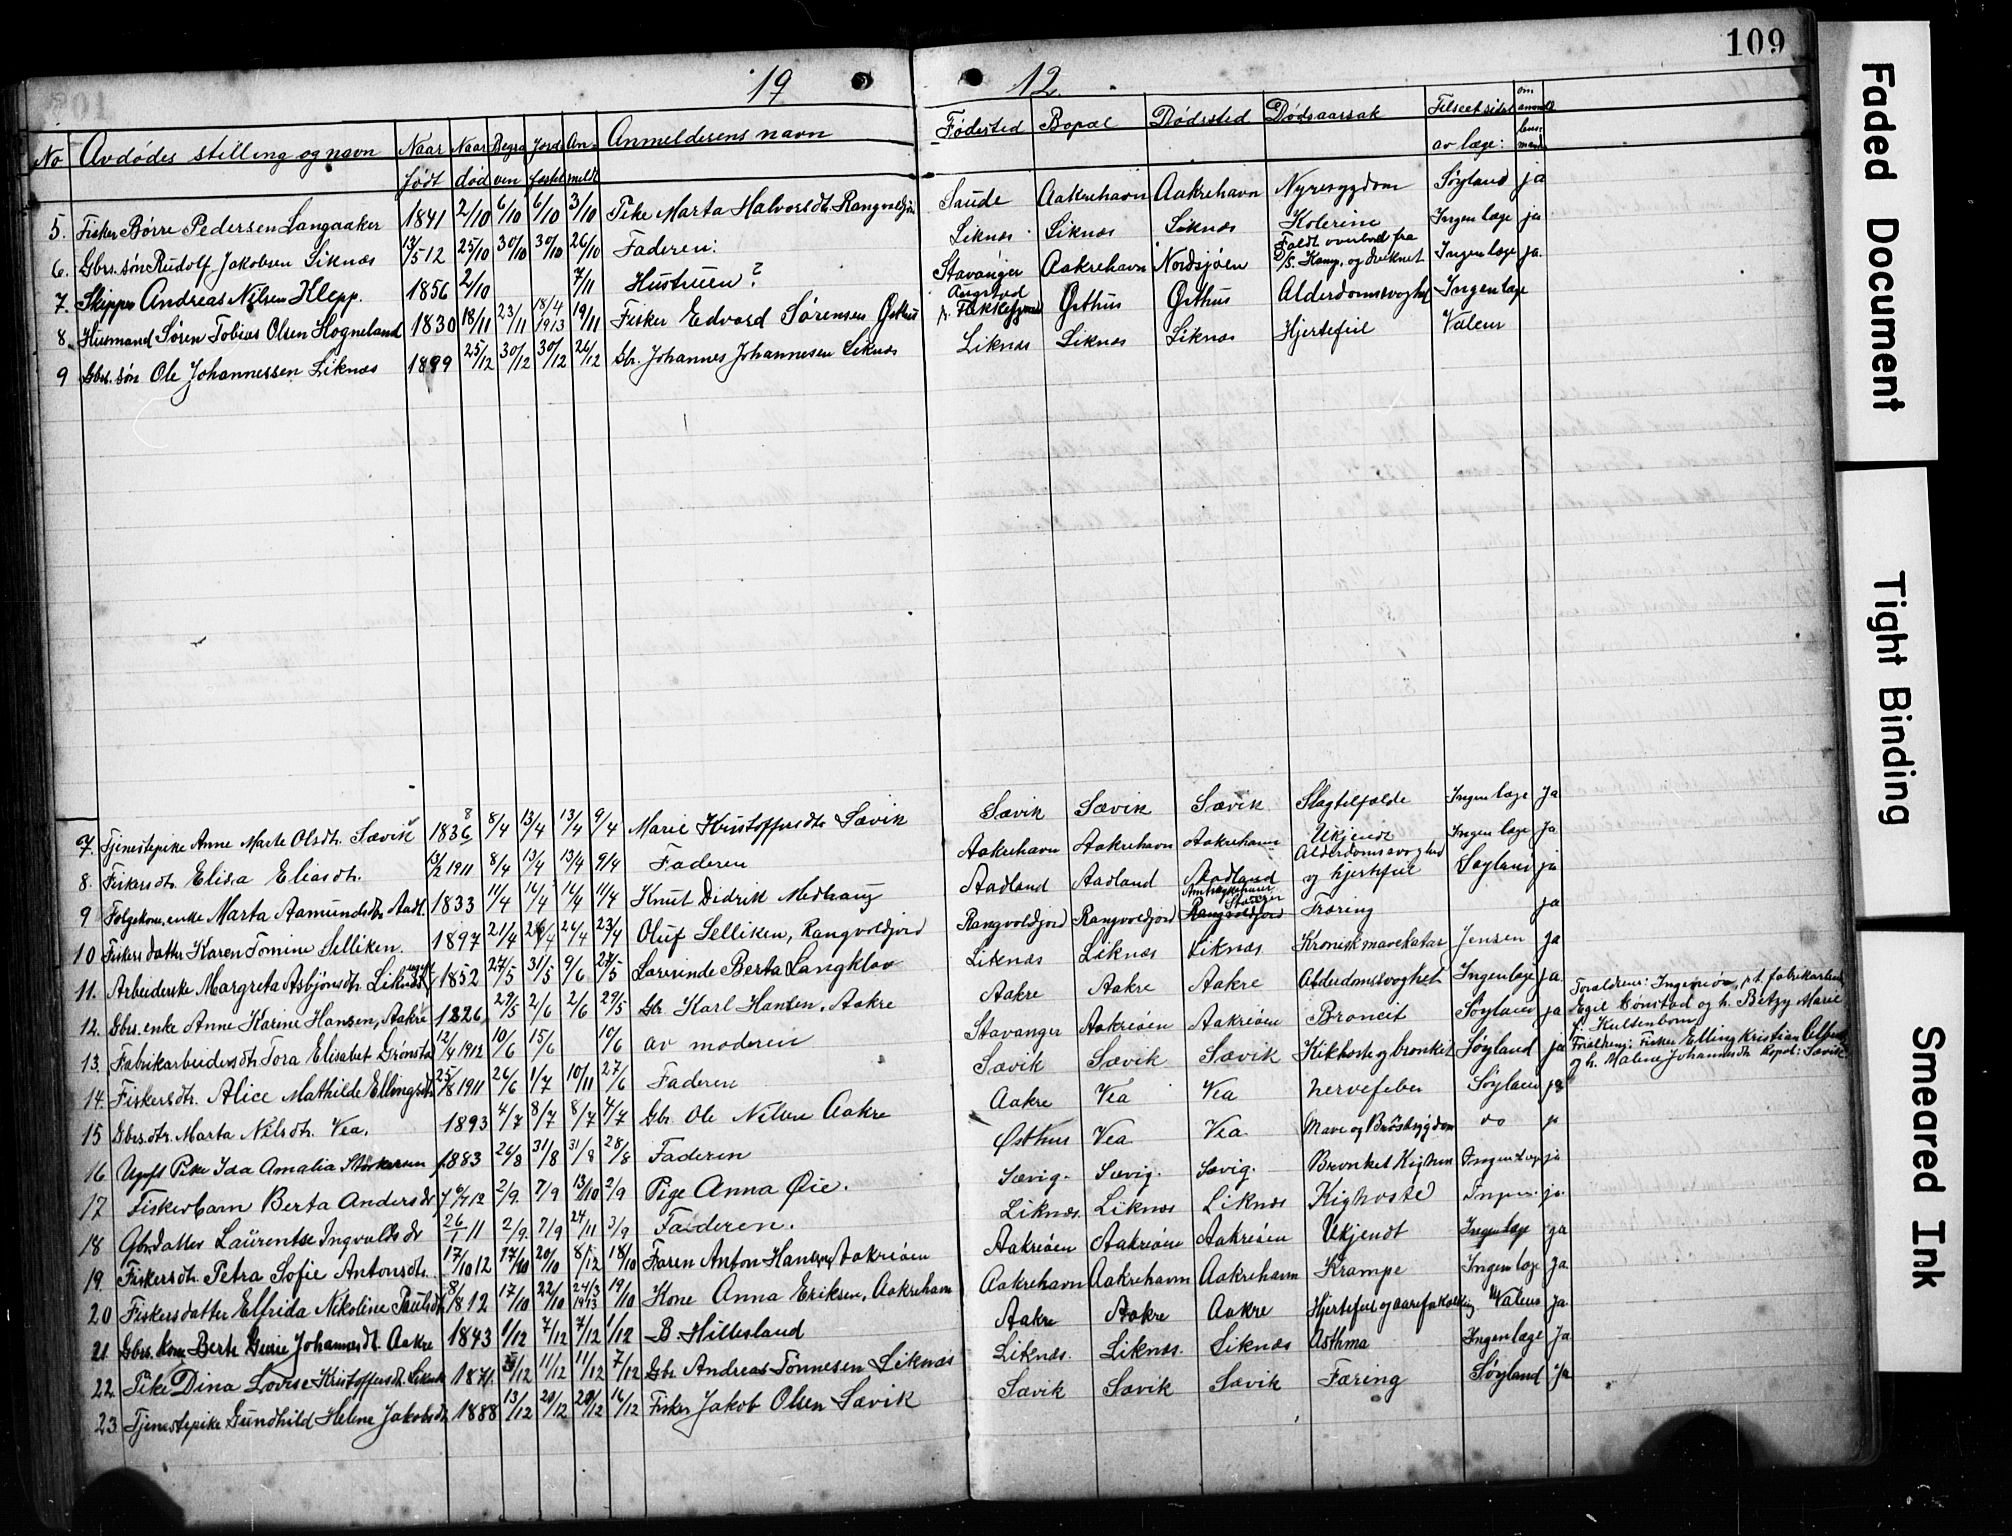 109
19 12.
No Avdødes stilling og navn Naar født Naar død Begra ven Jord festet An- meldt Anmelderens navn Fødested Bopæl Dødssted Dødsaarsak Tilseet sidst av læge: om anmeldt lens- mand
5. Fisker Børre Pedersen Langaaker 1841 2/10 6/10 6/10 3/10 Pike Marta Halvorsdt. Rangvoldjor Saude Aakrehavn Aakrehavn Nyresygdom Søyland ja
6. Gbrs. søn Rudolf Jakobsen Liknæs 13/5 12 25/10 30/10 30/10 26/10 Faderen: Liknæs Liknæs Liknæs Kolerine Ingen læge ja
7. Skipper Andreas Nilsen Klepp. 1856 2/10 7/11 Hustruen? Stavanger Aakrehavn Nordsjøen Faldt overbord fra D/S. Kamp. og druknet Ingen læge ja.
8. Husmand Søren Tobias Olsen Hogneland 1830 18/11 23/11 18/4 1913 19/11 Fisker Edvard Sørensen Østhus p. Flekkefjord Østhus Østhus Alderdomssvaghet Ingen læge
9 Gbrs. søn Ole Johannessen Liknæs 1899 25/12 30/12 30/12 26/12 Gbr. Johannes Johannesen Liknæs Liknæs Liknæs Liknæs Hjertefeil Valeur
7. Tjenestepike Anne Marte Olsdtr. Sævik 1836 8 8/4 13/4 13/4 9/4 Marie Kristoffersdtr Sævik Sævik Sævik Sævik Slagtilfælde Ingen læge Ja
8. Fiskersdtr. Elisa Eliasdtr. 13/2 1911 8/4 13/4 13/4 9/4 Faderen Aakrehavn Aakrehavn Aakrehavn Ukjendt Ingen læge Ja
9 Folgekone, enke Marta Aamundsdtr Aadl. 1833 11/4 16/4 16/4 11/4 Knut Didrik Medhaug Aadland Aadland Aadland Alderdomssvaghed og hjertefeil Søyland ja
10 Fiskers datter Karen Tomine Selliken. 1897 21/4 26/4 26/4 23/4 Oluf Selliken, Rangvoldjord Rangvoldjord Rangvoldjord Amtssykehuset Stavanger Rangvoldjord Tæring ja
11. Arbeiderske Margreta Asbjønsdtr Liknæs ugift 1852 27/5 31/5 9/6 27/5 Lovinde Berta Langkløv Liknæs Liknæs Liknæs Kronisk mavekatar Jensen ja
12. Gbrs. enke Anne Karine Hansen, Aakre 1826 29/5 2/6 2/6 29/5 Gbr Karl Hansen. Aakre Aakre Aakre Aakre Alderdomssvaghet Ingen læge ja
13. Fabrikarbeidersdtr Tora Elisabet Grønsta 12/4 1912 10/6 15/6 10/6 av moderen Stavanger Aakreøen Aakreøen Broncit Søyland ja Foraldrene: Ingeniør, p.t. fabrikarbeid Egil Grønstad og h. Betzy Marie f. Kultenborn
14. Fiskersdtr. Alice Mathilde Ellingsdtr 25/8 1911 26/6 1/7 10/11 27/6 Faderen Sævik Sævik Sævik Kikhoste og bronket Søyland ja Foraldreng: Fisker Elling Kristian Olsen og h. Malene Johannesdtr Bopæl: Sævik
15 Gbrs.dtr. Marta Nilsdtr. Vea. 1893 4/7 8/7 8/7 4/7 Gbr. Ole Nilsen Aakre Aakre Vea Vea nervefeber Søyland ja
16 Ugift Pike Ida Amalia Størkersen 1883 26/8 31/8 31/8 28/8 Faderen Østhus Vea Vea Mave og Brøstsygdom do ja
17 Fiskerbarn Berta Andersdr 6/7 12 2/9. 7/9 13/10 2/9 Pige Anna Øie. Sævig. Sævig. Sævig. Bronket Kighoste Ingen Læge ja
18 Gbrdatter Laurentse Ingvaldsdr 26/1 11 2/9. 7/9 24/11 3/9 Faderen. Liknæs. Liknæs Liknæs Kighoste Ingen. ja.
19. Fiskersdtr. Petra Sofie Antonsdtr. 17/10 12 17/10 20/10 8/12 18/10 Faren Anton Hansen, Aakreøen Aakreøen Aakreøen Aakreøen Ukjendt Ingen læge ja
20 Fiskersdatter Elfrida Nikoline Paulsdtr 8/8 12 17/10 22/10 24/3 1913 19/10 Kone Anna Eriksen, Aakrehavn Aakrehavn Aakrehavn Aakrehavn Krampe Ingen læge Ja.
21. Gbrs. Kone Berte Gurie Johannesdt. Aakre 1843 1/12 7/12 7/12 1/12 B. Hillesland Aakre Aakre Aakre Hjertefeil og aareforkalkning Valeur Ja.
22. Pike Dina Lovise Kristoffersdt. Liknæs 1871. 5/12 11/12 11/12 7/12 Gbr. Andreas Tønnesen Liknæs Liknæs. Liknæs. Liknæs Asthma Ingen læge Ja
23. Tjenestepike Gundhild Helene Jakobsdtr 1888 13/12 20/12 20/12 16/12 Fisker Jakob Olsen Sævik Sævik Sævik Sævik Tæring Søyland Ja
Faded Document
Tight Binding
Smeared Ink